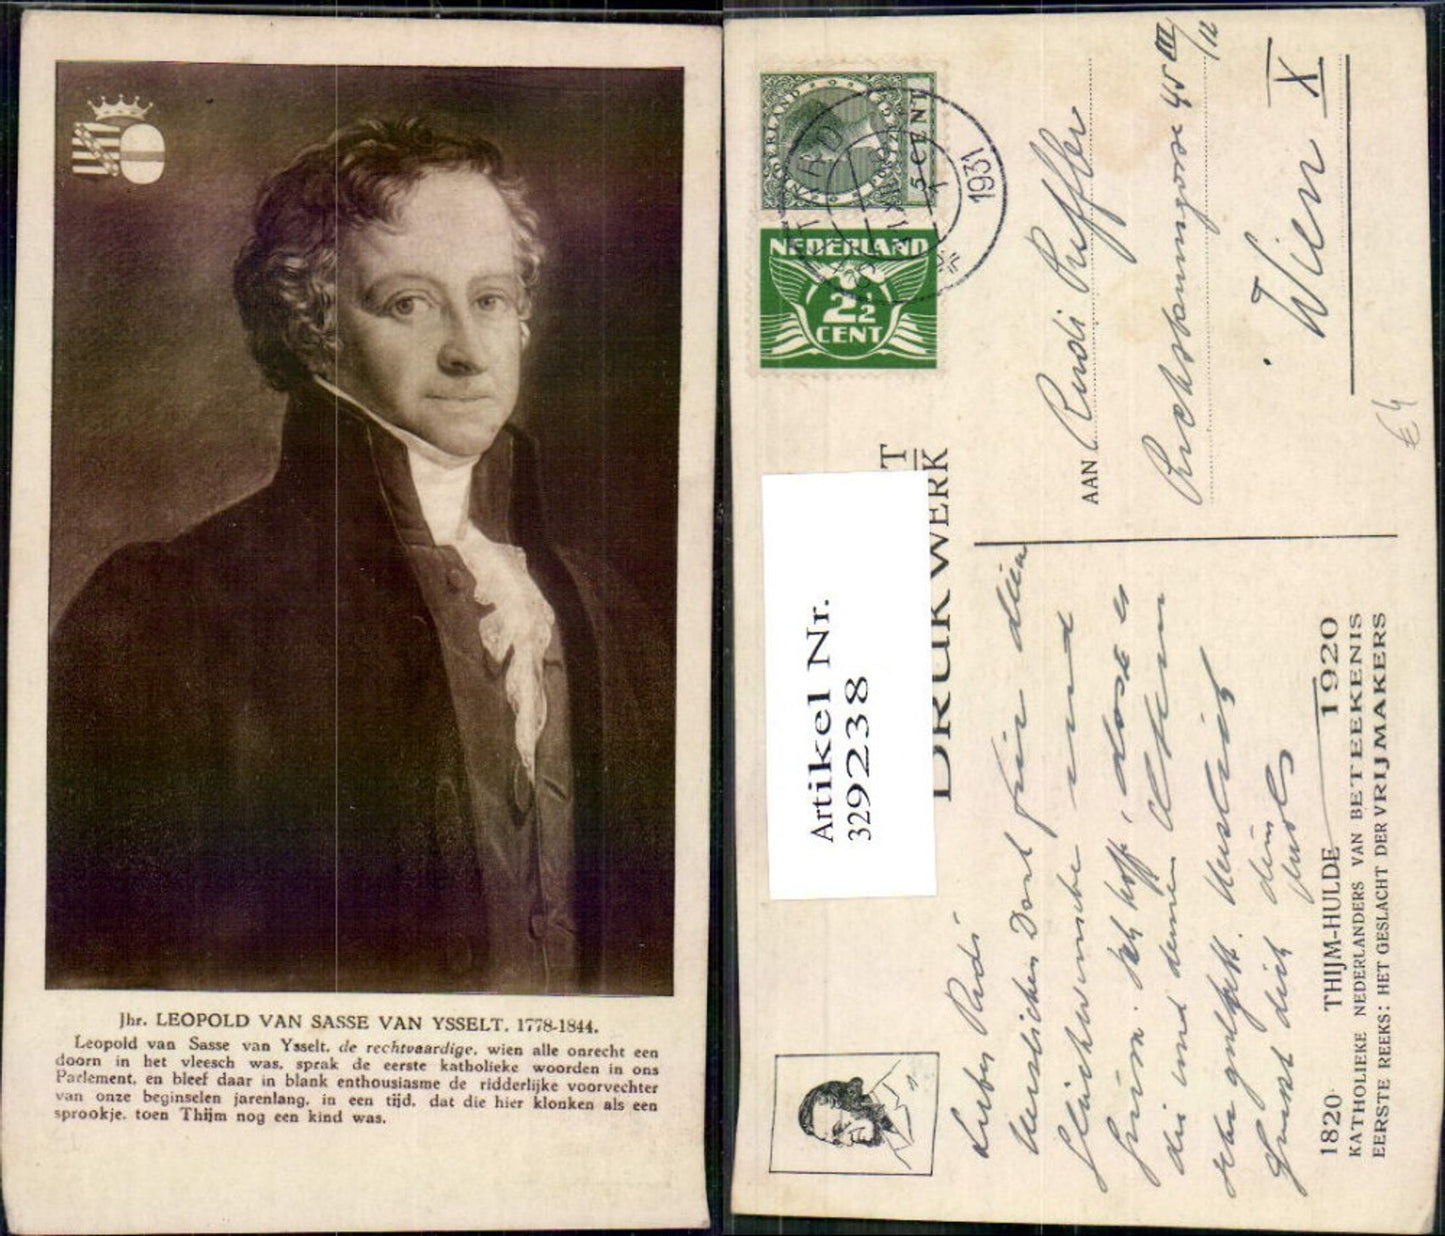 Jhr. LEOPOLD VAN SASSE VAN YSSELT. 1778-1844.
Leopold van Sasse van Ysselt, de rechtvaardige, wien alle onrecht een
doorn in het vleesch was, sprak de eerste katholieke woorden in ons
Parlement, en bleef daar in blank enthousiasme de ridderlijke voorvechter
van onze beginselen jarenlang, in een tijd, dat die hier klonken als een
sprookje, toen Thijm nog een kind was.
NEDERLAND
5 CENT
1931
NEDERLAND
2½
CENT
DRUKWERK
Artikel Nr.
329238
AAN Rudi Püffler
45 III/12
Wien X
€4
Lieber Rudi
Herzlichen Dank für deine
Glückwünsche und
Grüsse. Ich hoffe, dass es
die und deinen Eltern
sehr gut geht. Herzlichst
Grüsst dich dein
1820 THIJM-HULDE 1920
KATHOLIEKE NEDERLANDERS VAN BETEEKENIS
EERSTE REEKS: HET GESLACHT DER VRIJMAKERS